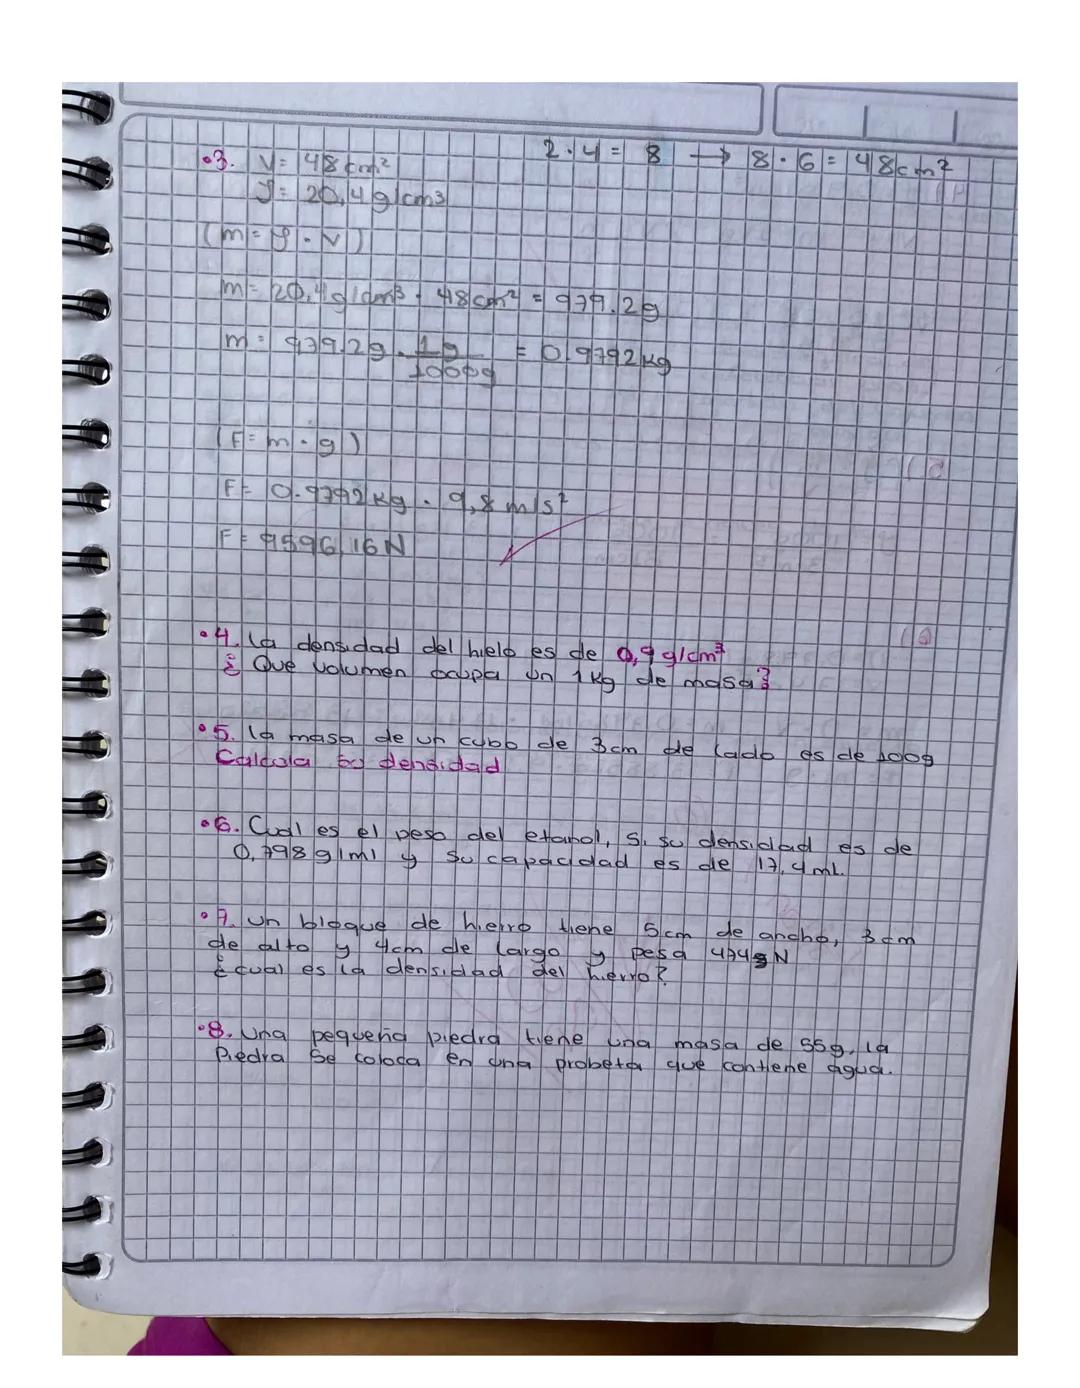 •3. V= 48cm² 2·4= 8 → 8·6= 48cm²
ρ= 20,4g/cm3
(m=ρ·V)
m= 20,4g/cm3 · 48cm² = 979.2g
m= 979.2g · 1g/1000g = 0.9792kg
(F=m·g)
F= 0.9792kg · 9,8m/s²
F= 9596,16N
•4. la densidad del hielo es de 0,9g/cm³
¿Que volumen ocupa un 1kg de masa?
•5. la masa de un cubo de 3cm de lado es de 100g
Calcula su densidad
•6. Cual es el peso del etanol, si su densidad es de
0,798g/ml y su capacidad es de 17,4mL.
•7. un bloque de hierro tiene 5cm de ancho, 3cm
de alto y 4cm de largo y pesa 474 N
¿cual es la densidad del hierro?
•8. una pequeña piedra tiene una masa de 55g, la
Piedra se coloca en una probeta que contiene agua.